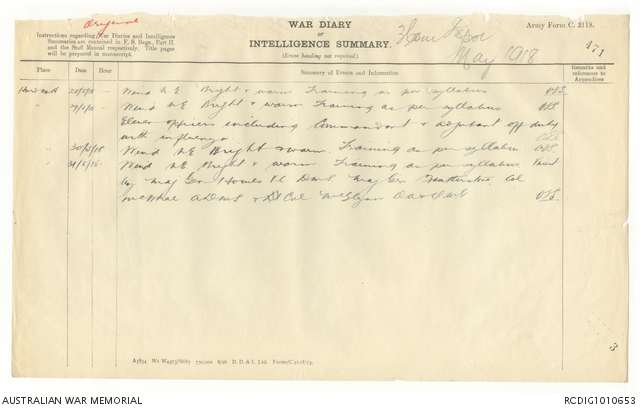 Original
Instructions regarding War Diaries and Intelligence
Summaries are contained in F. S. Regs., Part II.
and the Staff Manual respectively. Title pages
will be prepared in manuscript.
WAR DIARY
or
INTELLIGENCE SUMMARY.
(Erase heading not required.)
May 1918
Army Form C. 2118.
471
Place
Date
Hour
Summary of Events and Information
Remarks and
references to
Appendices
28/5/18 Wind N.E. Bright & warm Training as per syllabus
29/5/18 Wind N.E. Bright & warm Training as per syllabus
Eleven officers including Commandant & Adjutant off duty
with influenza
30/5/18 Wind N.E. Bright & warm. Training as per syllabus
31/5/18 Wind N.E. Bright & warm Training as per syllabus
by Maj Gen Maj Gen Col
McWhae ADMS & Lt Col McGlynn
3
AUSTRALIAN WAR MEMORIAL
RCDIG1010653